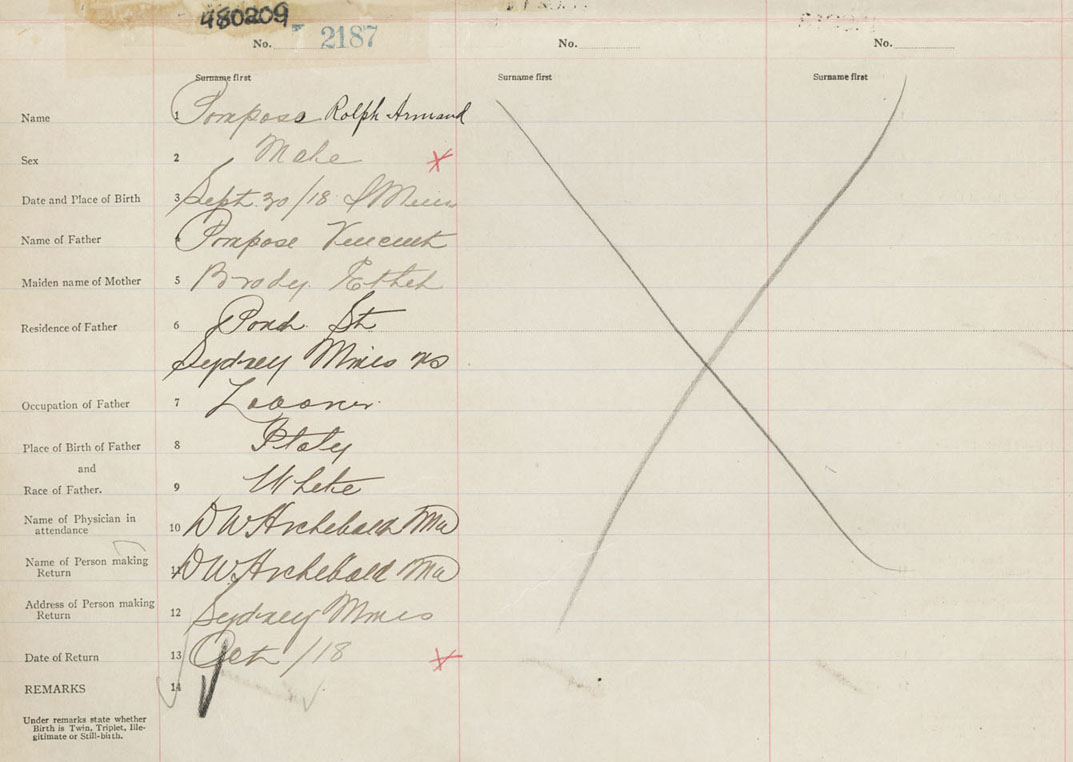 480209
No. 2187 No. No.
Surname first Surname first Surname first
Name 1 Pompose Rolph Armand
Sex 2 Male
Date and Place of Birth 3 Sept. 30/18 S Mines
Name of Father 4 Pompose Vincent
Maiden name of Mother 5 Brody. Ethel
Residence of Father 6 Pond St
Sydney Mines NS
Occupation of Father 7
Place of Birth of Father 8 Italy
and
Race of Father. 9 White
Name of Physician in
attendance 10 DW Archebald Md
Name of Person making
Return 11 DW Archebald Md
Address of Person making
Return 12 Sydney Mines
Date of Return 13 Oct /18
REMARKS 14
Under remarks state whether
Birth is Twin, Triplet, Ille-
gitimate or Still-birth.